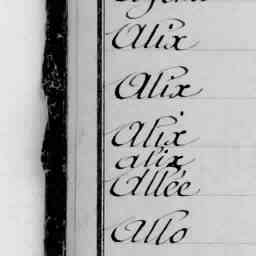 Alix
Alix
Alix
alix
Allée
Allo